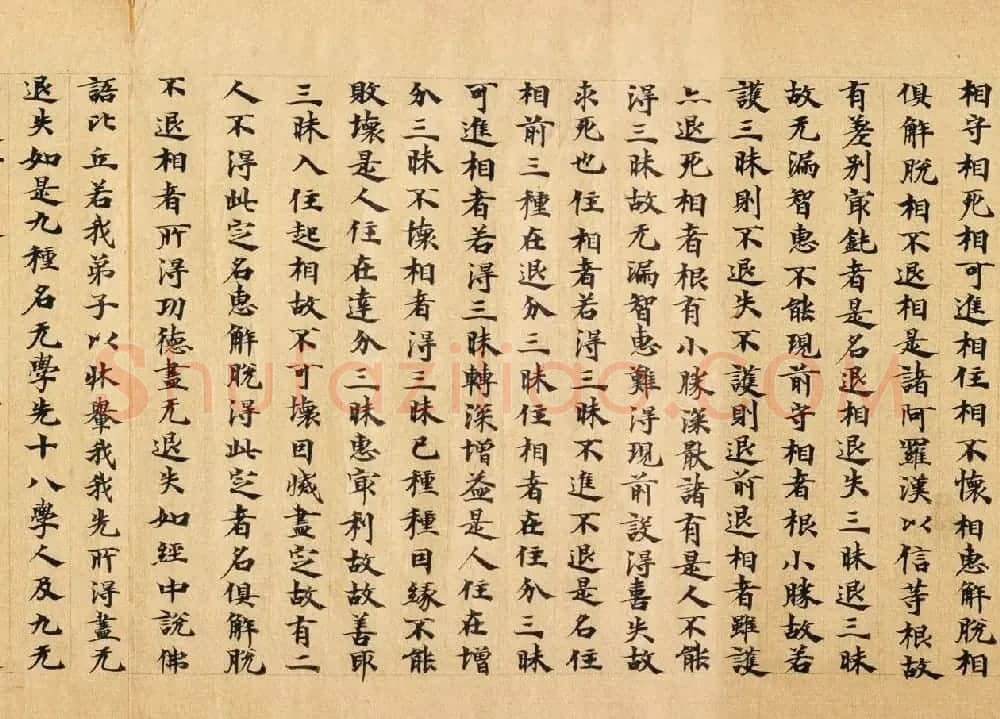 相守相死相可進相住相不懷相惠解脫相
俱解脫相不退相是諸阿羅漢以信等根故
有差別冣鈍者是名退相退失三昧退三昧
故无漏智惠不能現前守相者根小勝故若
護三昧則不退失不護則退前退相者雖護
亦退死相者根有小勝深猒諸有是人不能
得三昧故无漏智惠難得現前設得喜失故
求死也住相者若得三昧不進不退是名住
相前三種在退分三昧住相者在住分三昧
可進相者若得三昧轉深增益是人住在增
分三昧不懷相者得三昧已種種因緣不能
敗壞是人住在達分三昧惠冣利故故善取
三昧入住起相故不可壞因滅盡定故有二
人不得此定名惠解脫得此定者名俱解脫
不退相者所得功德盡无退失如經中說佛
語比丘若我弟子以牀轝我我先所得盡无
退失如是九種名无學先十八學人及九无
Shufaziliao.COM